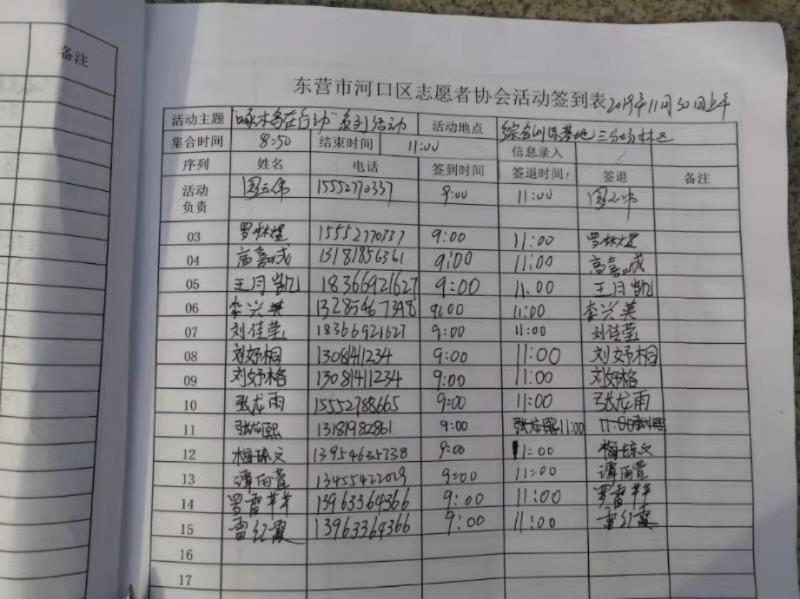 备注
东营市河口区志愿者协会活动签到表 2019年11月30日上午
活动主题 "啄木鸟在行动"系列活动 活动地点 综合训练基地 三分场林区
集合时间 8:50 结束时间 11:00 信息录入
序列 姓名 电话 签到时间 签退时间 签退 备注
活动负责 15552770337 9:00 11:00
03 罗林煜 15552770337 9:00 11:00 罗林煜
04 高嘉成 13181856361 9:00 11:00 高嘉成
05 王月凯 18366921627 9:00 11:00 王月凯
06 李兴英 13285467348 9:00 11:00 李兴英
07 刘佳莹 18366921627 9:00 11:00 刘佳莹
08 刘妤桐 1308141234 9:00 11:00 刘妤桐
09 刘妤格 1308141234 9:00 11:00 刘妤格
10 张龙雨 15552788665 9:00 11:00 张龙雨
11 张龙熙 13181982861 9:00 张龙熙 11:00 11:00
12 梅琼文 13954635738 9:00 11:00 梅琼文
13 谭雨萱 13455422029 9:00 11:00 谭雨萱
14 罗雷芊芊 13963364366 9:00 11:00 罗雷芊芊
15 雷红霞 13963364366 9:00 11:00 雷红霞
16
17